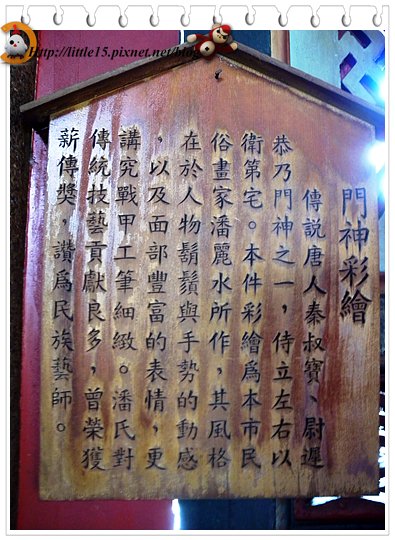 Http://little15.pixnet.net/blog
門神彩繪
傳說唐人秦叔寶、尉遲
恭乃門神之一，侍立左右以
衛第宅。本件彩繪為本市民
俗畫家潘麗水所作，其風格
在於人物鬍鬚與手勢的動感
，以及面部豐富的表情，更
講究戰甲工筆細緻。潘氏對
傳統技藝貢獻良多，曾榮獲
薪傳獎，讚為民族藝師。